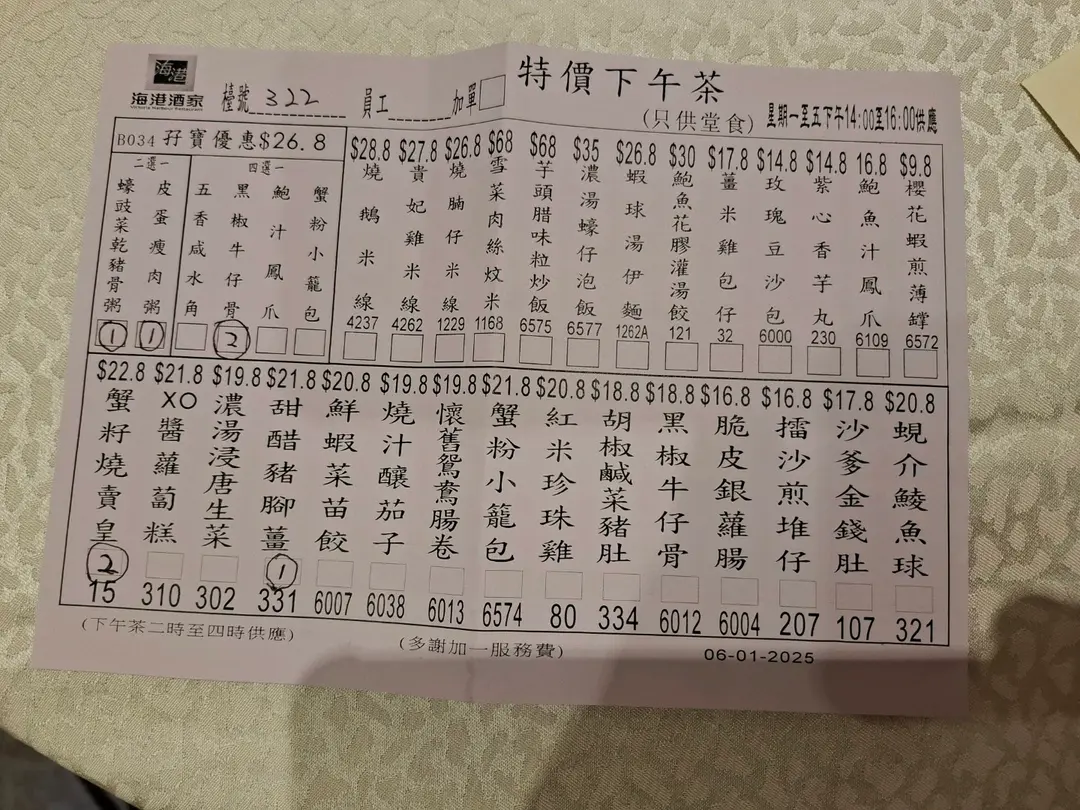 海港
海港酒家
檯號 322
員工
加單
特價下午茶
(只供堂食)
星期一至五下午14:00至16:00供應
B034 孖寶優惠$26.8
二選一
蠔豉菜乾豬骨粥 1
皮蛋瘦肉粥 1
四選一
五香咸水角
黑椒牛仔骨 2
鮑汁鳳爪
蟹粉小籠包
$28.8 燒鵝米線 4237
$27.8 貴妃雞米線 4262
$26.8 燒腩仔米線 1229
$68 雪菜肉絲炆米 1168
$68 芋頭腊味粒炒飯 6575
$35 濃湯蠔仔泡飯 6577
$26.8 蝦球湯伊麵 1262A
$30 鮑魚花膠灌湯餃 121
$17.8 薑米雞包仔 32
$14.8 玫瑰豆沙包 6000
$14.8 紫心香芋丸 230
16.8 鮑魚汁鳳爪 6109
$9.8 櫻花蝦煎薄罉 6572
$22.8 蟹籽燒賣皇 2 15
$21.8 XO醬蘿蔔糕 310
$19.8 濃湯浸唐生菜 302
$21.8 甜醋豬腳薑 1 331
$20.8 鮮蝦菜苗餃 6007
$19.8 燒汁釀茄子 6038
$19.8 懷舊鴛鴦腸卷 6013
$21.8 蟹粉小籠包 6574
$20.8 紅米珍珠雞 80
$18.8 胡椒鹹菜豬肚 334
$18.8 黑椒牛仔骨 6012
$16.8 脆皮銀蘿腸 6004
$16.8 擂沙煎堆仔 207
$17.8 沙爹金錢肚 107
$20.8 蜆介鯪魚球 321
(下午茶二時至四時供應)
(多謝加一服務費)
06-01-2025